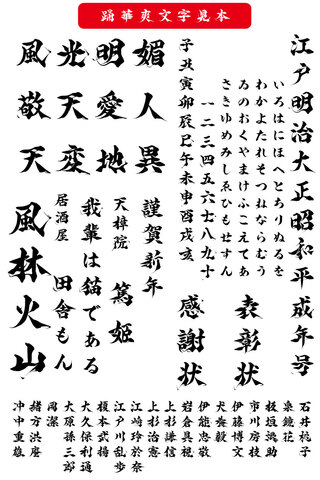 踊華爽文字見本
江戸明治大正昭和平成年号
いろはにほへとちりぬるを
わかよたれそつねならむう
ゐのおくやまけふこえてあ
さきゆめみしゑひもせすん
一二三四五六七八九十
子丑寅卯辰巳午未申酉戌亥
媚人異
明愛地
光天変
風敬天
表彰状
感謝状
謹賀新年
篤姫
天樟院
我輩は猫である
田舎もん
居酒屋
風林火山
石井桃子
泉鏡花
板垣退助
市川房枝
伊藤博文
犬養毅
伊能忠敬
岩倉具視
上杉謙信
上杉治憲
江崎玲於奈
江戸川乱歩
榎本武揚
大久保利通
大原孫三郎
岡潔
緒方洪庵
沖中重雄